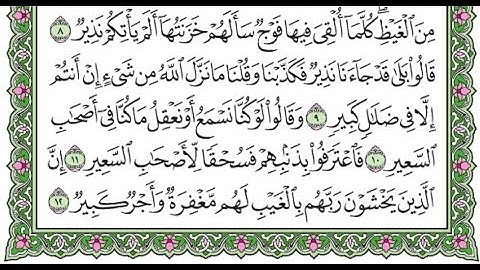 مِنَ ٱلْغَيْظِ ۖ كُلَّمَآ أُلْقِىَ فِيهَا فَوْجٌ سَأَلَهُمْ خَزَنَتُهَآ أَلَمْ يَأْتِكُمْ نَذِيرٌ ٨
قَالُوا۟ بَلَىٰ قَدْ جَآءَنَا نَذِيرٌ فَكَذَّبْنَا وَقُلْنَا مَا نَزَّلَ ٱللَّهُ مِن شَىْءٍ إِنْ أَنتُمْ
إِلَّا فِى ضَلَٰلٍ كَبِيرٍ ٩ وَقَالُوا۟ لَوْ كُنَّا نَسْمَعُ أَوْ نَعْقِلُ مَا كُنَّا فِىٓ أَصْحَٰبِ
ٱلسَّعِيرِ ١٠ فَٱعْتَرَفُوا۟ بِذَنۢبِهِمْ فَسُحْقًا لِّأَصْحَٰبِ ٱلسَّعِيرِ ١١ إِنَّ
ٱلَّذِينَ يَخْشَوْنَ رَبَّهُم بِٱلْغَيْبِ لَهُم مَّغْفِرَةٌ وَأَجْرٌ كَبِيرٌ ١٢